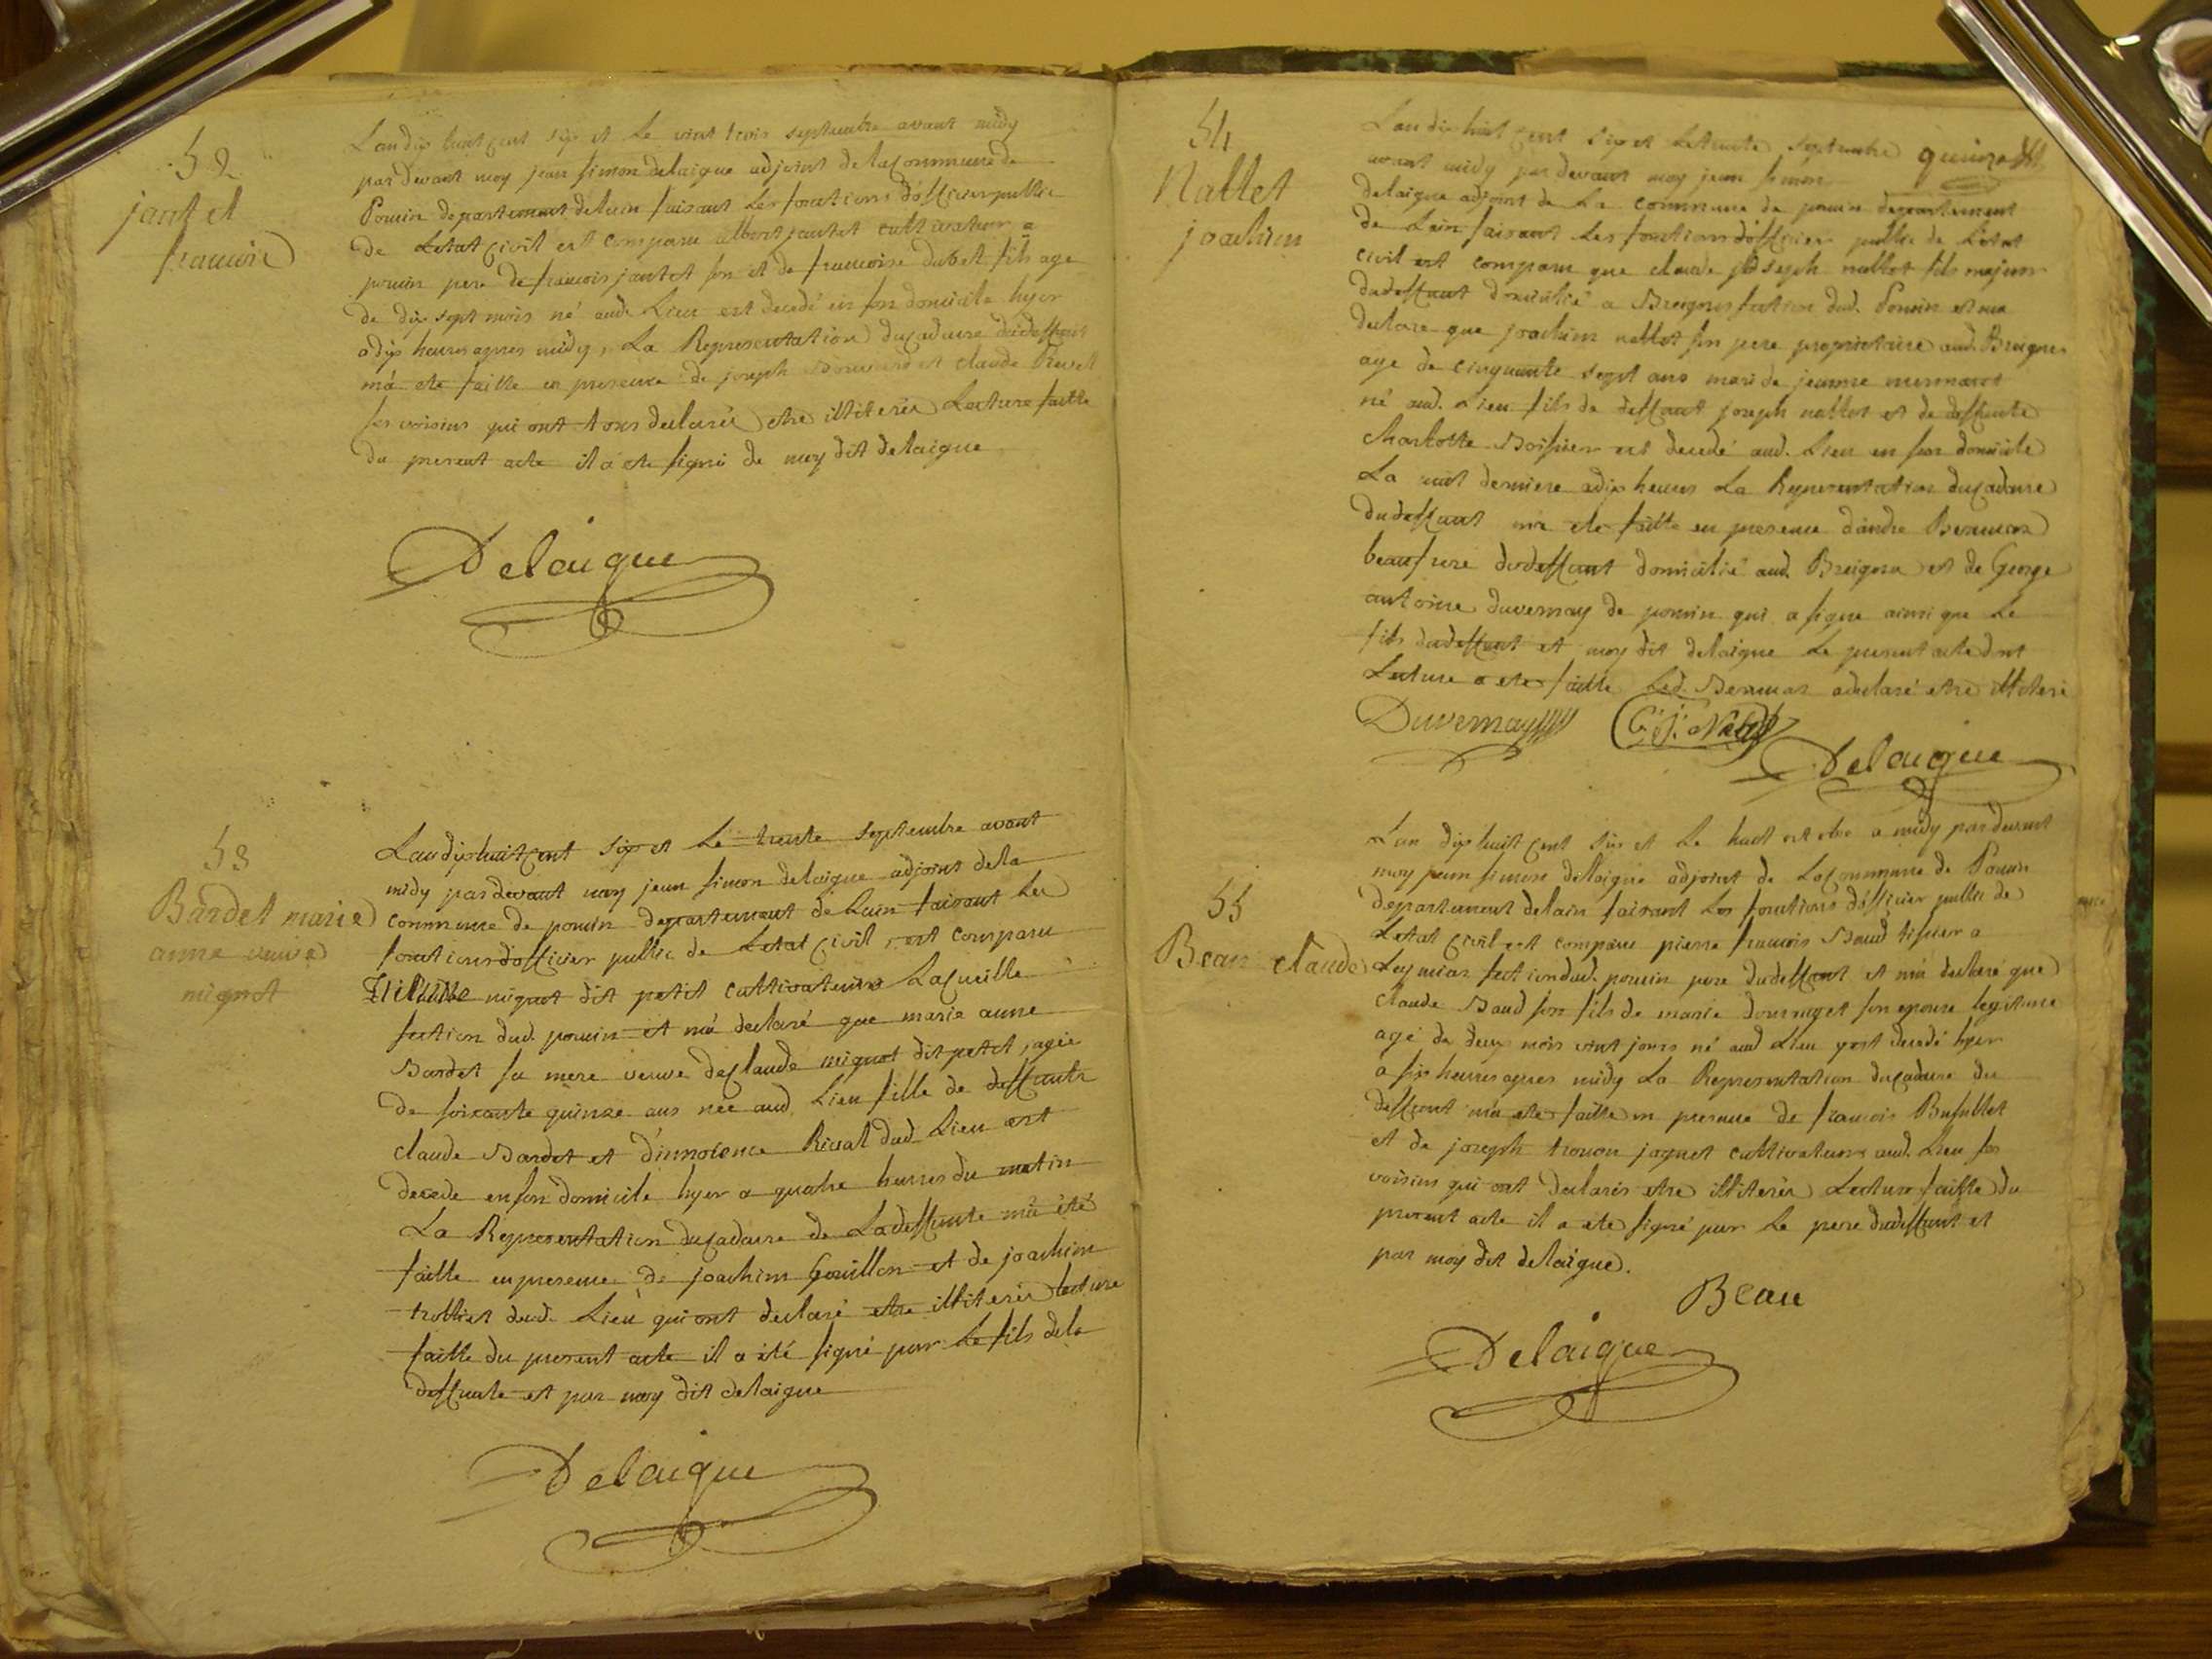 52
jantet
francois
Lan dix huit cent six et le vint trois septembre avant midy
par devant moy jean simon delaigue adjoint de la Commune de
Pouin departement de lain faisant les fonctions d'officier public
de Letat Civil est comparu albert jantet cultivateur a
pouin pere de francois jantet son et de francoise dubet fils age
de dix sept mois né aud. Lieu est decedé en son domicile hyer
a dix heures apres midy, La Representation du Cadavre dudeffunt
m'a ete faitte en presence de joseph et claude
ses voisins qui ont tous declarés etre illiterés Lecture faitte
du present acte il a ete signé de moy dit delaigue
Delaigue
53
Bardet marie
anne veuve
mignot
Lan dix huit cent six et Le trente septembre avant
midy pardevant moy jean simon delaigue adjoint de la
commune de pouin departement de Lain faisant Les
fonctions d'officier public de Letat Civil, est comparu
mignot dit petit cultivateur a Lacueille
section dud. pouin et m'a declaré que marie anne
Bardet sa mere veuve de Claude mignot dit petit, agée
de soixante quinze ans née aud. Lieu fille de deffunts
claude Bardet et d'innocence Rival dud. Lieu est
decede en son domicile hyer a quatre heures du matin
La Representation du Cadavre de Ladeffunte m'a été
faitte en presence de joachim Gouillon et de joachim
trolliet dud. Lieu qui ont declaré etre illiterés lecture
faitte du present acte il a été signé par Le fils dela
deffunte et par moy dit delaigue
Delaigue
54
Nallet
joachim
Lan dix huit cent six et Le trente septembre
avant midy par devant moy jean simon
delaigue adjoint de La commune de pouin departement
de Lain faisant Les fonctions d'officier public de Letat
Civil est comparu que claude joseph nallet fils majeur
dudeffunt domicilié a section dud. Pouin et m'a
declaré que joachim nallet son pere proprietaire aud.
age de cinquante sept ans mari de jeanne
né aud. Lieu fils de deffunt joseph nallet et de deffunte
charlotte est decedé aud. Lieu en son domicile
La nuit derniere a dix heures La Representation du Cadavre
dudeffunt m'a ete faitte en presence d'andre
beaufrere dudeffunt domicilié aud. et de George
antoine duvernay de pouin qui a signe ainsi que Le
fils dudeffunt et moy dit delaigue Le present acte dont
Lecture a ete faitte Led. a declaré etre illiteré
Duvernay
Delaigue
55
Beau claude
Lan dix huit cent six et Le huit octobre a midy par devant
moy jean simon delaigue adjoint de La Commune de Pouin
departement de lain faisant Les fonctions d'officier public de
Letat Civil est comparu pierre francois Baud tissier a
section dud. pouin pere dudeffunt et m'a declaré que
claude Baud son fils de marie son epouse legitime
agé de deux mois vint jours né aud Lieu y est decedé hyer
a six heures apres midy La Representation du Cadavre du
deffunt m'a ete faitte en presence de francois
et de joseph jaquet cultivateurs aud. Lieu ses
voisins qui ont declarés etre illiterés Lecture faitte du
present acte il a ete signé par Le pere dudeffunt et
par moy dit delaigue.
Beau
Delaigue